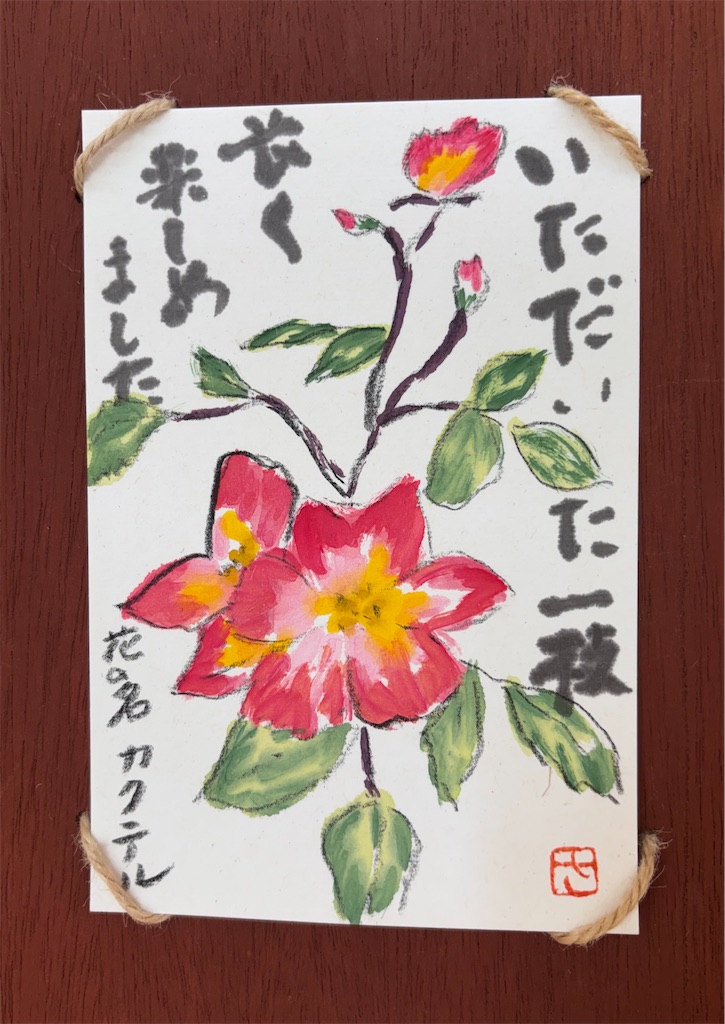 いただいた一枝
長く
楽しめ
ました
花の名 カクテル